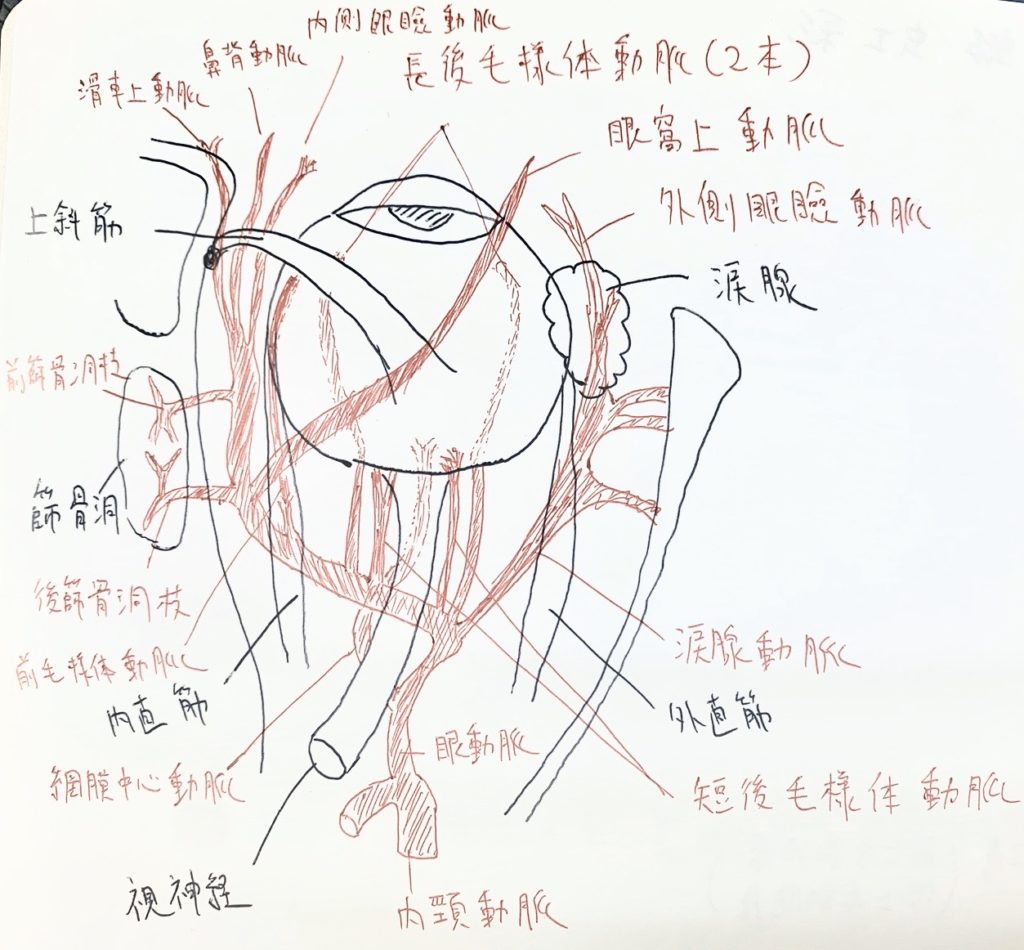 内側眼瞼動脈
鼻背動脈
長後毛様体動脈(2本)
滑車上動脈
眼窩上動脈
外側眼瞼動脈
上斜筋
涙腺
前篩骨洞枝
篩骨洞
後篩骨洞枝
涙腺動脈
前毛様体動脈
内直筋
外直筋
眼動脈
網膜中心動脈
短後毛様体動脈
視神経
内頸動脈